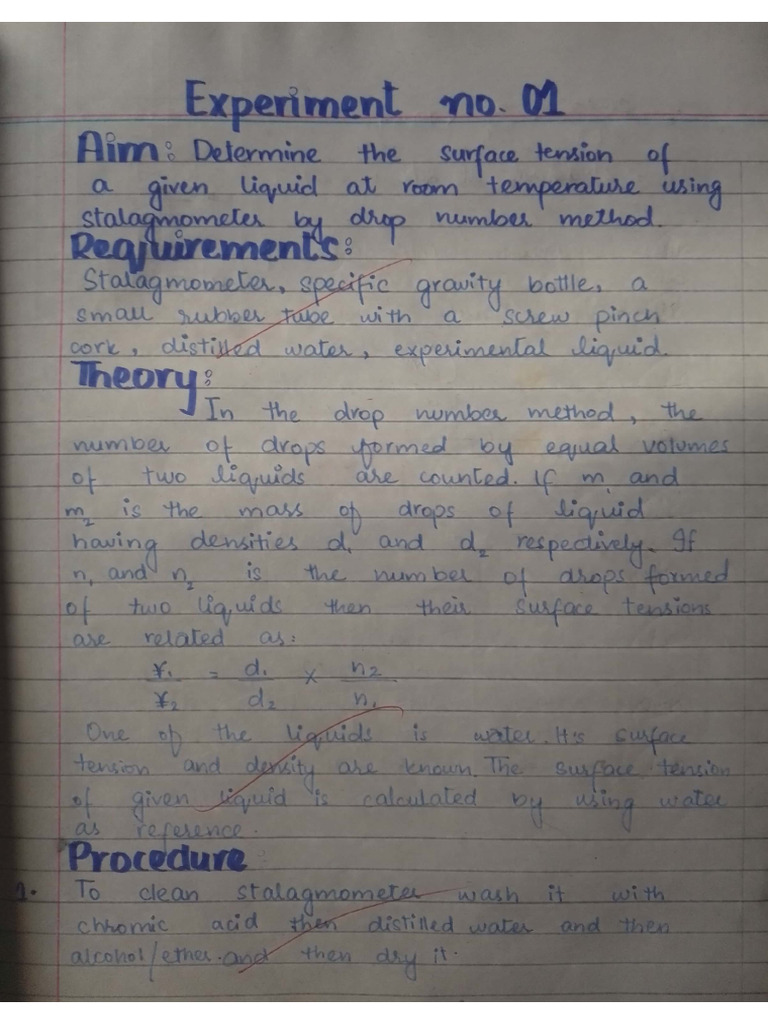 Experiment no. 01
Aim: Determine the surface tension of
a given liquid at room temperature using
stalagmometer by drop number method.
Requirements:
Stalagmometer, specific gravity bottle, a
small rubber tube with a screw pinch
cork, distilled water, experimental liquid.
Theory:
In the drop number method, the
number of drops formed by equal volumes
of two liquids are counted. If m₁ and
m₂ is the mass of drops of liquid
having densities d₁ and d₂ respectively. If
n₁ and n₂ is the number of drops formed
of two liquids then their surface tensions
are related as:
¥₁/¥₂ = d₁/d₂ × n₂/n₁
One of the liquids is water. It's surface
tension and density are known. The surface tension
of given liquid is calculated by using water
as reference.
Procedure
1. To clean stalagmometer wash it with
chromic acid then distilled water and then
alcohol/ether. and then dry it.